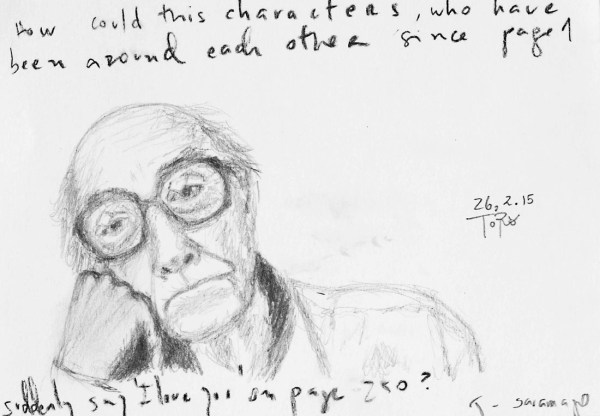 How could this characters, who have
been around each other since page 1
26,2.15
suddenly say 'I love you' on page 250?
J - Saramago